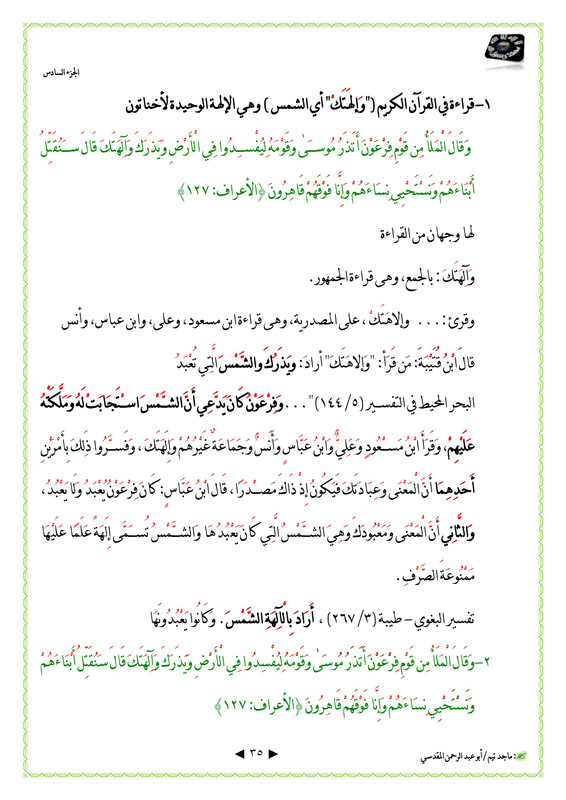 الجزء السادس
١- قراءة في القرآن الكريم ("وَإِلَهَتَكَ" أي الشمس) وهي الإلهة الوحيدة لأخناتون
وَقَالَ الْمَلَأُ مِن قَوْمِ فِرْعَوْنَ أَتَذَرُ مُوسَىٰ وَقَوْمَهُ لِيُفْسِدُوا فِي الْأَرْضِ وَيَذَرَكَ وَآلِهَتَكَ قَالَ سَنُقَتِّلُ
أَبْنَاءَهُمْ وَنَسْتَحْيِي نِسَاءَهُمْ وَإِنَّا فَوْقَهُمْ قَاهِرُونَ ﴿الأعراف: ١٢٧﴾
لها وجهان من القراءة
وَآلِهَتَكَ: بالجمع، وهى قراءة الجمهور.
وقرئ: ... وإلاهَتَكَ، على المصدرية، وهى قراءة ابن مسعود، وعلى، وابن عباس، وأنس
قالَ ابْنُ قُتَيْبَةَ: مَن قَرَأَ: "وإلاهَتَكَ" أرادَ: وَيَذَرُكَ والشَّمْسَ الَّتِي تُعْبَدُ
البحر المحيط في التفسير (٥/ ١٤٤)"... وَفِرْعَوْنُ كَانَ يَدَّعِي أَنَّ الشَّمْسَ اسْتَجَابَتْ لَهُ وَمَلَّكَتْهُ
عَلَيْهِمْ، وَقَرَأَ ابْنُ مَسْعُودٍ وَعَلِيٌّ وَابْنُ عَبَّاسٍ وَأَنَسٌ وَجَمَاعَةٌ غَيْرُهُمْ وَإِلَهَتَكَ، وَفَسَّرُوا ذَلِكَ بِأَمْرَيْنِ
أَحَدِهِمَا أَنَّ الْمَعْنَى وَعِبَادَتَكَ فَيَكُونُ إِذْ ذَاكَ مَصْدَرًا، قَالَ ابْنُ عَبَّاسٍ: كَانَ فِرْعَوْنُ يُعْبَدُ وَلَا يَعْبُدُ،
وَالثَّانِي أَنَّ الْمَعْنَى وَمَعْبُودَكَ وَهِيَ الشَّمْسُ الَّتِي كَانَ يَعْبُدُهَا وَالشَّمْسُ تُسَمَّى إِلَهَةً عَلَمًا عَلَيْهَا
مَمْنُوعَةَ الصَّرْفِ.
تفسير البغوي - طيبة (٣/ ٢٦٧)، أَرَادَ بِالْآلِهَةِ الشَّمْسَ. وَكَانُوا يَعْبُدُونَهَا
٢- وَقَالَ الْمَلَأُ مِن قَوْمِ فِرْعَوْنَ أَتَذَرُ مُوسَىٰ وَقَوْمَهُ لِيُفْسِدُوا فِي الْأَرْضِ وَيَذَرَكَ وَآلِهَتَكَ قَالَ سَنُقَتِّلُ أَبْنَاءَهُمْ
وَنَسْتَحْيِي نِسَاءَهُمْ وَإِنَّا فَوْقَهُمْ قَاهِرُونَ ﴿الأعراف: ١٢٧﴾
: ماجد تيم / أبو عبد الرحمن المقدسي
٣٥